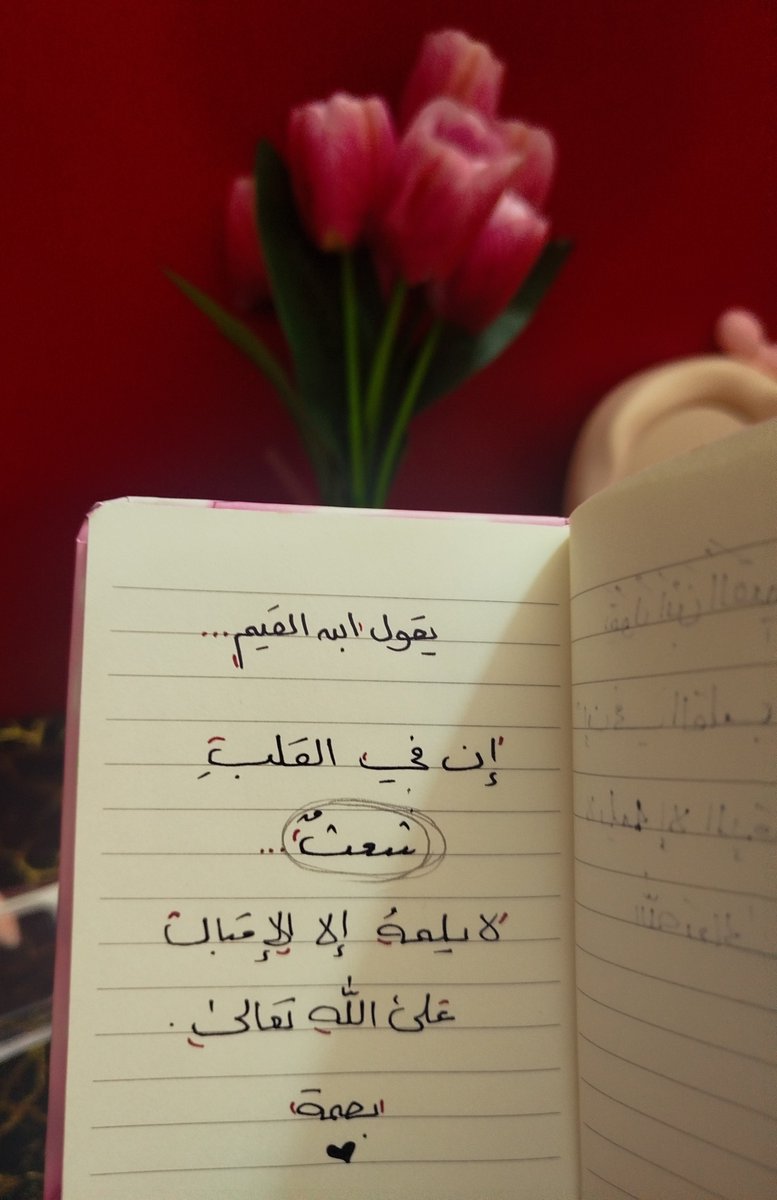 يقول ابن القيم...
إن في القلبِ
شعثٌ...
لا يلمهُ إلا الإقبال
على اللّٰهِ تَعالىٰ.
بصمة